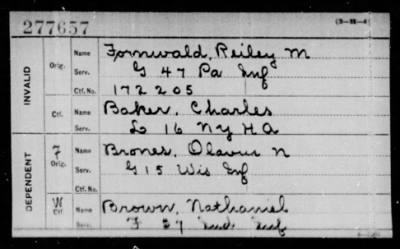 277657
(3-111-4)
INVALID
Orig.
Name Fornwald, Reiley M
Serv. G 47 Pa Inf
Ctf. No. 172 205
Ctf.
Name Baker, Charles
Serv. L 16 NY H A
DEPENDENT
F Orig.
Name Brones, Olavus N
Serv. G 15 Wis Inf
W Ctf
Name Brown, Nathaniel
Serv. F 27 Ind Inf